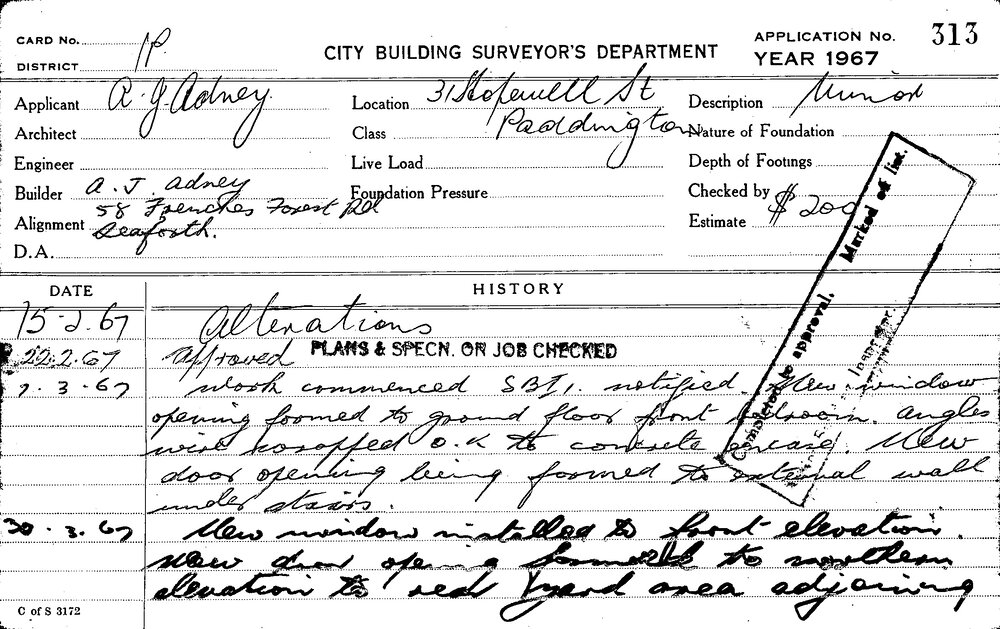 CARD No. 1P.
DISTRICT
CITY BUILDING SURVEYOR'S DEPARTMENT
APPLICATION No. 313
YEAR 1967
Applicant A. J. Adney.
Location 31 Hopewell St
Paddington
Description Minor
Architect
Class
Nature of Foundation
Engineer
Live Load
Depth of Footings
Builder A. J. Adney
58 Frenches Forest Rd
Seaforth.
Foundation Pressure
Checked by
Alignment
Estimate $200
D.A.
DATE
HISTORY
15-2.67 Alterations
22.2.67 Approved PLANS & SPECN. OR JOB CHECKED
7.3.67 Work commenced SBI. notified. New window
opening formed to ground floor front bedroom. angles
wire wrapped O.K to concrete encase. New
door opening being formed to external wall
under stairs.
30.3.67 New window installed to front elevation.
New door opening formed to northern
elevation to rear yard area adjoining
Completed to approval. Marked of list.
Inspector
C of S 3172